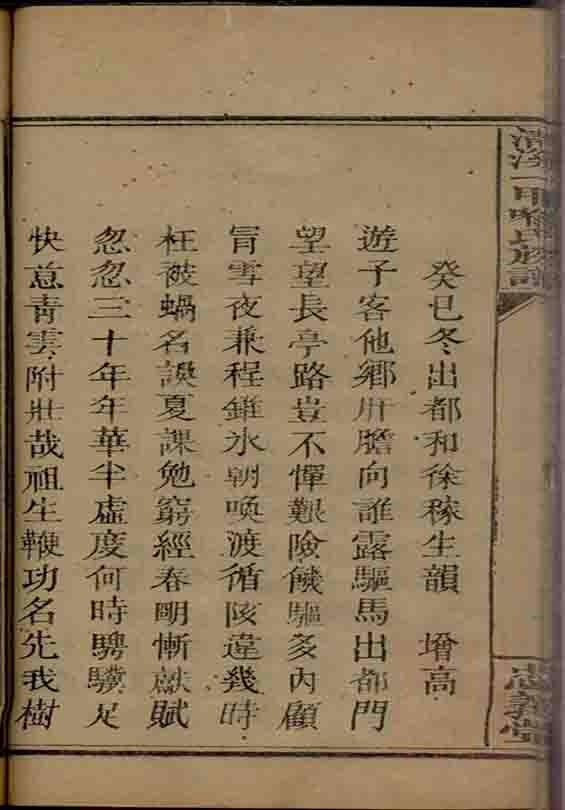 氏族譜
忠義堂
癸巳冬出都和徐稼生韻　增高
遊子客他鄉肝膽向誰露驅馬出都門
望望長亭路豈不憚艱險饑驅多內顧
冐雪夜兼程錐氷朝喚渡循陔違幾時
枉被蝸名誤夏課勉窮經春明慚獻賦
忽忽三十年年華半虛度何時騁驥足
快意青雲附壯哉祖生鞭功名先我樹